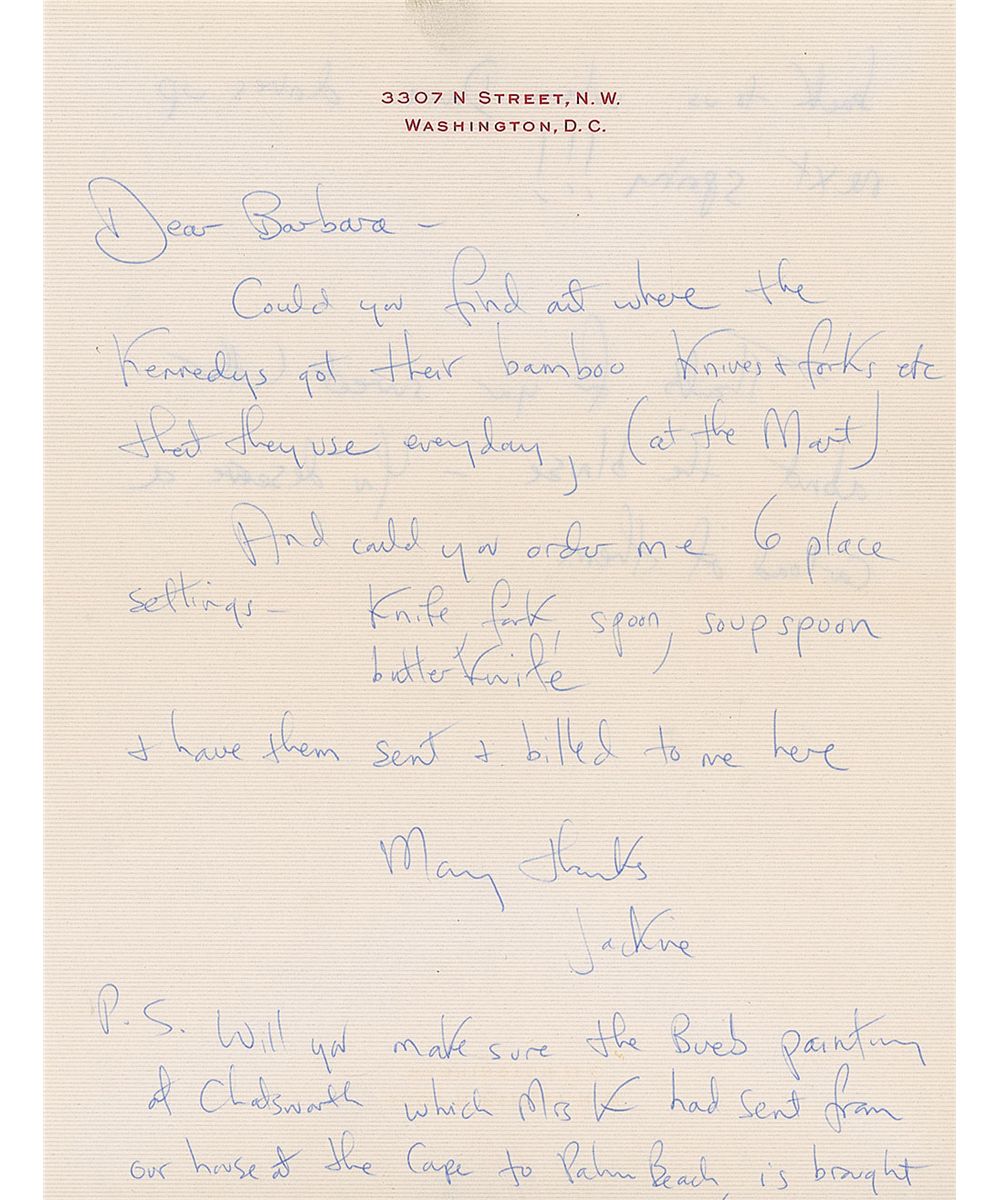 3307 N STREET, N.W.
WASHINGTON, D.C.
Dear Barbara –
Could you find out where the
Kennedys got their bamboo Knives + forks etc
that they use everyday, (at the Mart)
And could you order me 6 place
settings – Knife, fork, spoon, soup spoon,
butter Knife
+ have them sent + billed to me here
Many thanks
Jackie
P.S. Will you make sure the painting
of Chatsworth which Mrs K had sent from
our house at the Cape to Palm Beach, is brought